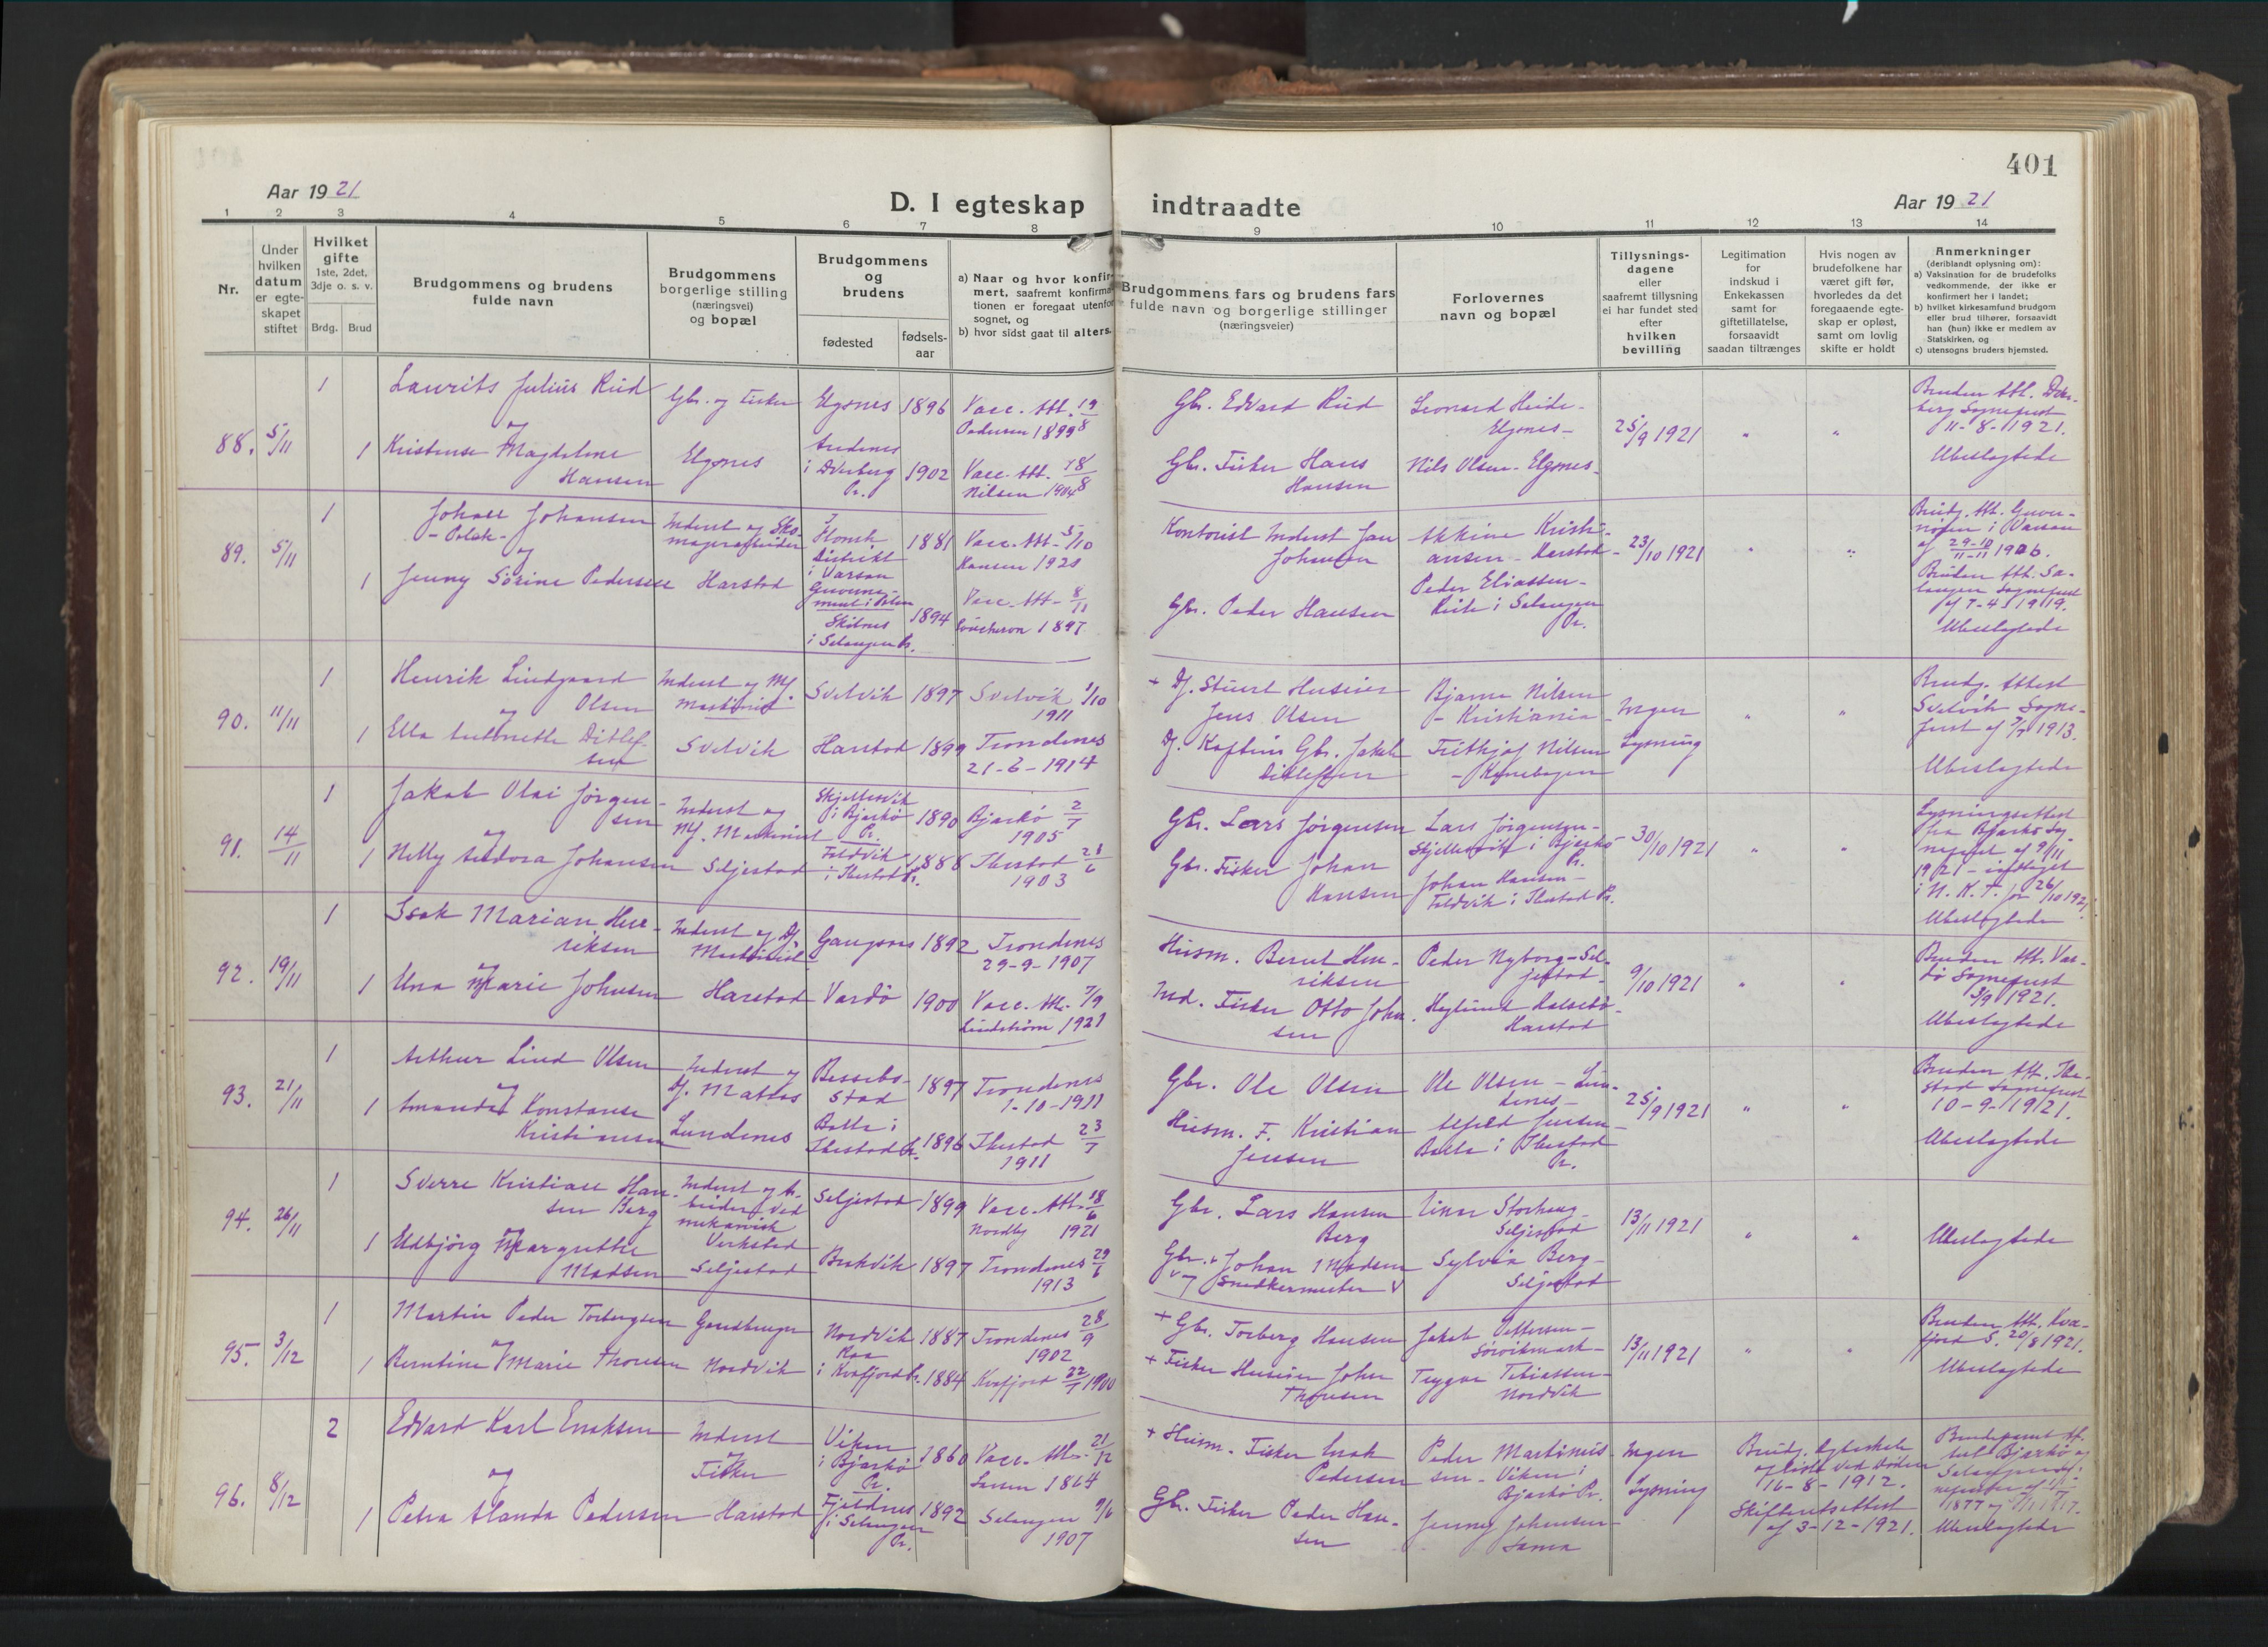 401
Aar 1921
D. I egteskap indtraadte
Aar 1921
1 2 3 4 5 6 7 8 9 10 11 12 13 14
Nr.
Under
hvilken
datum
er egte-
skapet
stiftet
Hvilket
gifte
1ste, 2det,
3dje o. s. v.
Brdg. Brud
Brudgommens og brudens
fulde navn
Brudgommens
borgerlige stilling
(næringsvei)
og bopæl
Brudgommens
og
brudens
fødested
fødsels-
aar
a) Naar og hvor konfir-
mert, saafremt konfirma-
tionen er foregaat utenfor
sognet, og
b) hvor sidst gaat til alters.
Brudgommens fars og brudens fars
fulde navn og borgerlige stillinger
(næringsveier)
Forlovernes
navn og bopæl
Tillysnings-
dagene
eller
saafremt tillysning
ei har fundet sted
efter
hvilken
bevilling
Legitimation
for
indskud i
Enkekassen
samt for
giftetillatelse,
forsaavidt
saadan tiltrænges
Hvis nogen av
brudefolkene har
været gift før,
hvorledes da det
foregaaende egte-
skap er opløst,
samt om lovlig
skifte er holdt
Anmerkninger
(deriblandt oplysning om):
a) Vaksination for de brudefolks
vedkommende, der ikke er
konfirmert her i landet;
b) hvilket kirkesamfund brudgom
eller brud tilhører, forsaavidt
han (hun) ikke er medlem av
Statskirken, og
c) utensogns bruders hjemsted.
88. 5/11
1
Laurits Julius Rud
og
1 Kristense Magdalene
Hansen
Gbr. og Fisker
Elgsnes
Elgsnes 1896
Andenes
i Dverberg
Pr. 1902
Vacc. Att. 19/8
Pedersen 1899
Vacc. Att. 18/8
Nilsen 1904
Gbr. Edvard Rud
Gbr. Fisker Hans
Hansen
Leonard Heide-
Elgsnes-
Nils Olsen-Elgsnes-
25/9 1921
Bruden Att. Dver-
berg Sogneprest
11-8-1921.
Ubeslegtede
89. 5/11
1
Johan Johansen
-Polak-
og
1 Jenny Sörine Pedersen
Inderst og Sko-
magerarbeider
Harstad
Distrikt
i Varsau
Guverne-
ment i Polen 1881
i Salangen Pr. 1894
Vacc. Att. 5/10
Hansen 1920
Vacc. Att. 8/11
1897
Kontorist Inderst Jan
Johansen
Gbr. Peder Hansen
Kristi-
ansen - Harstad-
Peder Eliassen-
i Salangen
Pr.
23/10 1921
Brudg. Att. Guver-
nören i Varsau
af 29-10/11-11 1906.
Bruden Att. Sa-
langen Sogneprest
af 7-4-1919.
Ubeslegtede
90. 11/11
1
Henrik Lindgaard
og Olsen
1 Ella Ditlef-
sen
Inderst og Mf.
Maskinist
Svelvik
Svelvik 1897
Harstad 1899
Svelvik 1/10
1911
Trondenes
21-6-1914
+ Df. Stuert Huseier
Jens Olsen
Df. Kaptein Gbr. Jakob
Ditlefsen
Bjarne Nilsen
- Kristiania
Frithjof Nilsen
Ingen
Lysning
Brudg. Attest
Svelvik Sogne-
prest af 1913.
Ubeslegtede
91. 14/11
1
Jakob Olai Jörgen-
sen
og
1 Nelly Andora Johansen
Inderst og
Mf. Maskinist
Seljestad
Skjellesvik
i Bjarkö
Pr. 1890
Foldvik
i Ibestad Pr. 1888
Bjarkö 2/7
1905
Ibestad 28/6
1903
Gbr. Lars Jörgensen
Gbr. Fisker Johan
Hansen
Lars Jörgensen-
Skjellesvik i Bjarkö
Pr.
Johan Hansen-
Foldvik i Ibestad Pr.
30/10 1921
Lysningsattest
fra Bjarkö Sog-
neprest af 9/11
1921 - indtaget
i N. K. T. for 26/10 1921.
Ubeslegtede
92. 19/11
1
Isak Marian Hen-
riksen
og
1 Una Marie Johnsen
Inderst og Df.
Maskinist
Harstad
Gangsaas 1892
Vardö 1900
Trondenes
29-9-1907
Vacc. Att. 7/9
Lindström 1921
Husm. Bernt Hen-
riksen
Ind. Fisker Otto John-
sen
Peder Nyborg-Sel-
jestad-
Harstad
9/10 1921
Bruden Att. Var-
dö Sogneprest
3/9 1921.
Ubeslegtede
93. 21/11
1
Arthur Lind Olsen
og
1 Amanda Konstanse
Kristiansen
Inderst og
Df. Matros
Lundenes
Bessebo-
stad 1897
Balla i
Ibestad Pr. 1896
Trondenes
1-10-1911
Ibestad 23/7
1911
Gbr. Ole Olsen
Husm. F. Kristian
Jensen
Ole Olsen - Lun-
denes-
Alfred Jensen-
Balla i Ibestad
Pr.
25/9 1921
Bruden Att. Ibe-
stad Sogneprest
10-9-1921.
Ubeslegtede
94. 26/11
1
Sverre Kristian Han-
sen Berg
og
1 Udbjörg Margrethe
Madsen
Inderst og Ar-
beider ved
mekanisk
Verksted
Seljestad
Seljestad 1899
Bukvik 1897
Vacc. Att. 18/6
Nordby 1921
Trondenes 29/6
1913
Gbr. Lars Hansen
Berg
Gbr. + Johan Madsen
Snedkermester
Einar Storhaug-
Seljestad
Sylvia Berg-
Seljestad
13/11 1921
Ubeslegtede
95. 3/12
1
Martin Peder Torbergsen
og
1 Berntine Marie Thoresen
Gaardbruger
Nordvik
Nordvik 1887
i Kvæfjord Pr. 1884
Trondenes 28/9
1902
Kvæfjord 22/7 1900
+ Gbr. Torberg Hansen
+ Fisker Huseier Johan
Thoresen
Jakob Pettersen-
Sörvikmark-
Trygve Tobiassen-
Nordvik
13/11 1921
Bruden Att. Kvæ-
fjord S. 20/8 1921.
Ubeslegtede
96. 8/12
2
Edvard Karl Enoksen
og
1 Petra Alanda Pedersen
Inderst
og
Fisker
Harstad
Viken
i Bjarkö
Pr. 1860
Fjeldnes
i Salangen
Pr. 1892
Vacc. Att. 21/12
Larsen 1864
Salangen 9/6
1907
+ Husm. Fisker Enok
Pedersen
Gbr. Fisker Peder Han-
sen
Peder Martinus-
sen - Viken i
Bjarkö Pr.
Jenny Johansen-
Sama
Ingen
Lysning
Brudg. Egteskab
oplöst ved Döden
16-8-1912.
Skifterets attest
af 3-12-1921.
Bjarkö og
Ubeslegtede